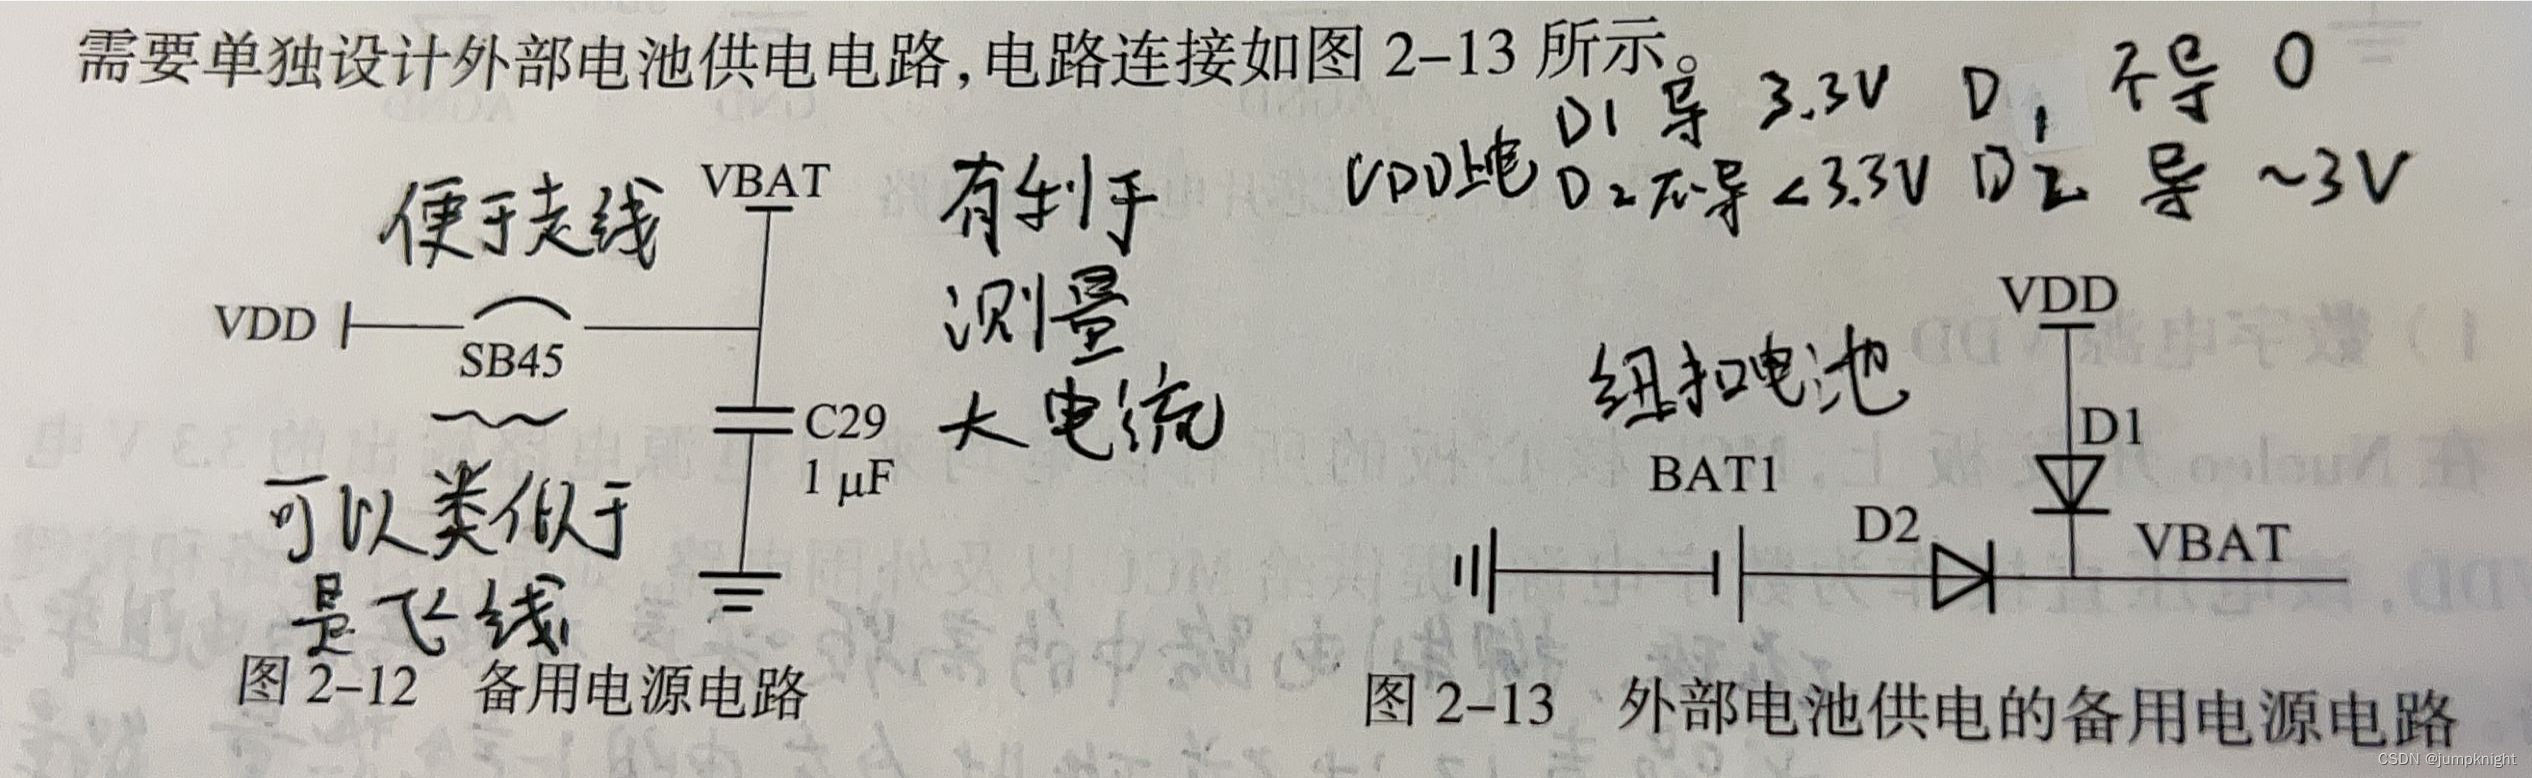 需要单独设计外部电池供电电路,电路连接如图 2-13 所示。
VDD上电 D1 导 3.3V D1 不导 0
D2 不导 <3.3V D2 导 ~3V
便于走线
VBAT
有利于
测量
大电流
VDD
SB45
C29
1 μF
可以类似于
是飞线
图 2-12 备用电源电路
VDD
纽扣电池
D1
BAT1
D2
VBAT
图 2-13 外部电池供电的备用电源电路
CSDN @jumpknight